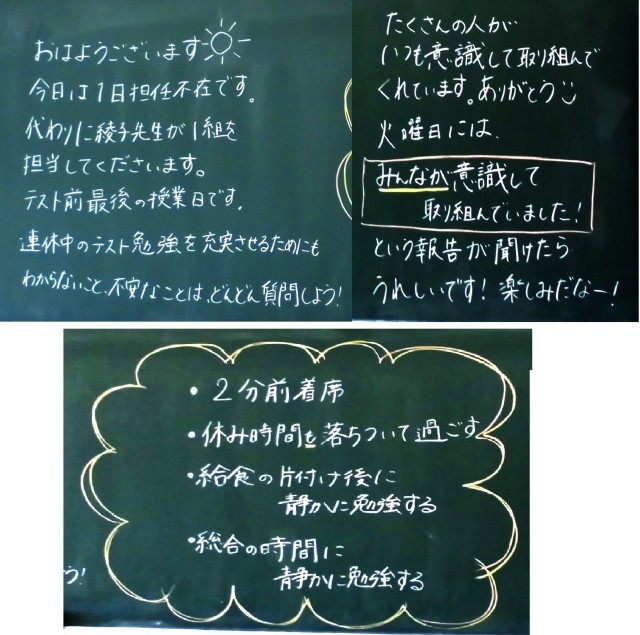 おはようございます
今日は1日担任不在です。
代わりに綾子先生が1組を
担当してくださいます。
テスト前最後の授業日です。
連休中のテスト勉強を充実させるためにも
わからないこと、不安なことは、どんどん質問しよう!
たくさんの人が
いつも意識して取り組んで
くれています。ありがとう
火曜日には、
みんなが意識して
取り組んでいました!
という報告が聞けたら
うれしいです!楽しみだなー!
・2分前着席
・休み時間も落ちついて過ごす
・給食の片付け後に
静かに勉強する
・総合の時間に
静かに勉強する
う!